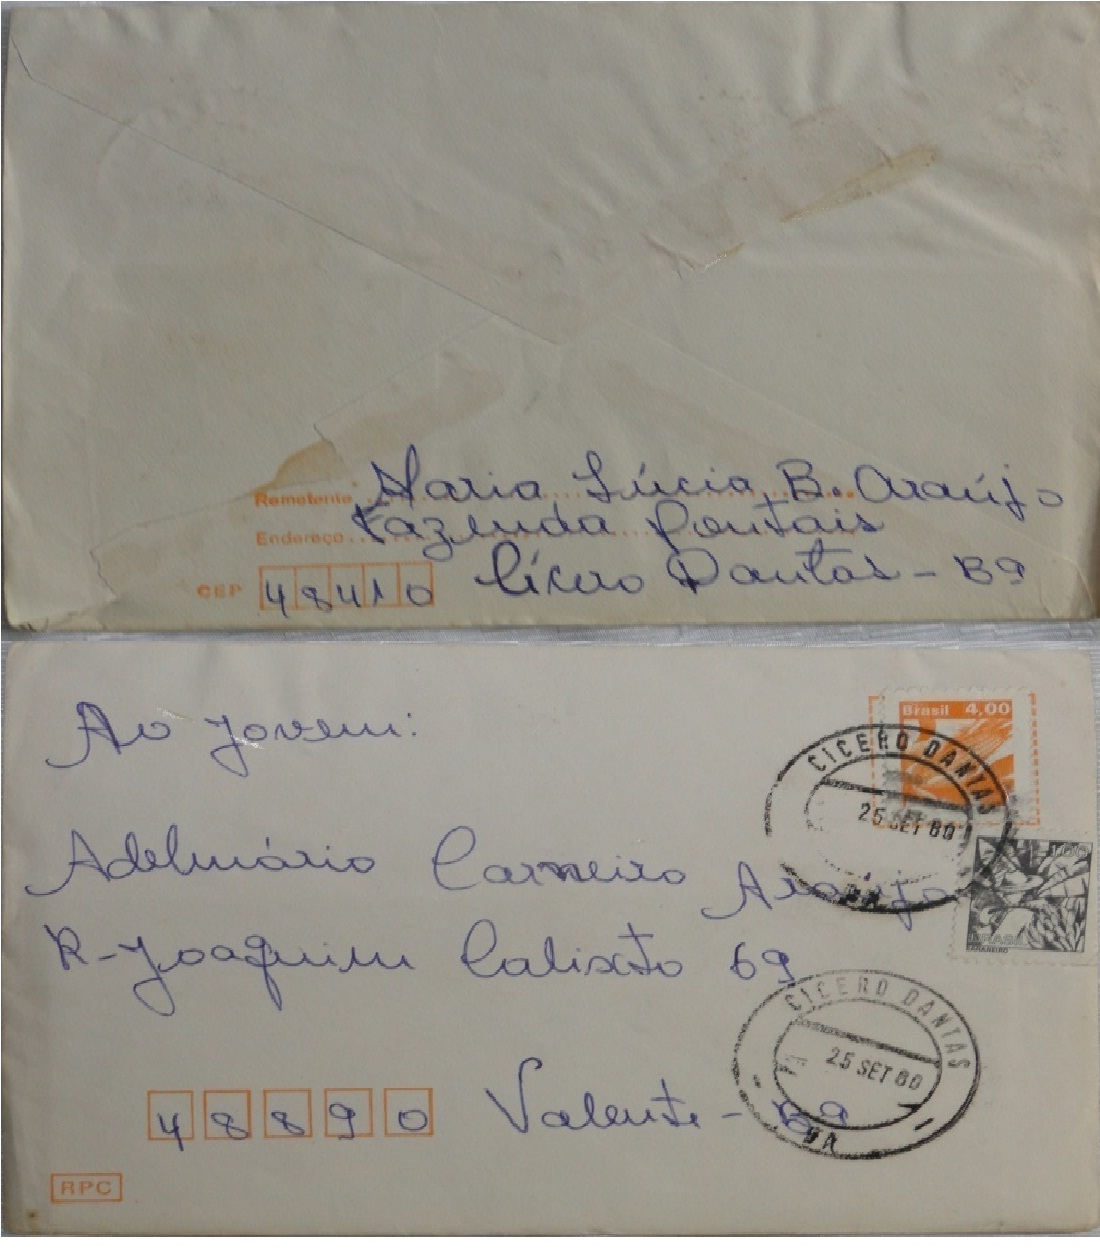 Remetente Maria Lúcia B. Araújo
Endereço Fazenda Pontais
CEP 48410 Cícero Dantas - Ba
Ao Jovem:
Brasil 4,00
CICERO DANTAS
25 SET 80
BA
Adelmário Carneiro Araújo
1,00
BRASIL
R-Joaquim Calixto 69
CICERO DANTAS
25 SET 80
BA
48890 Valente - Ba
RPC